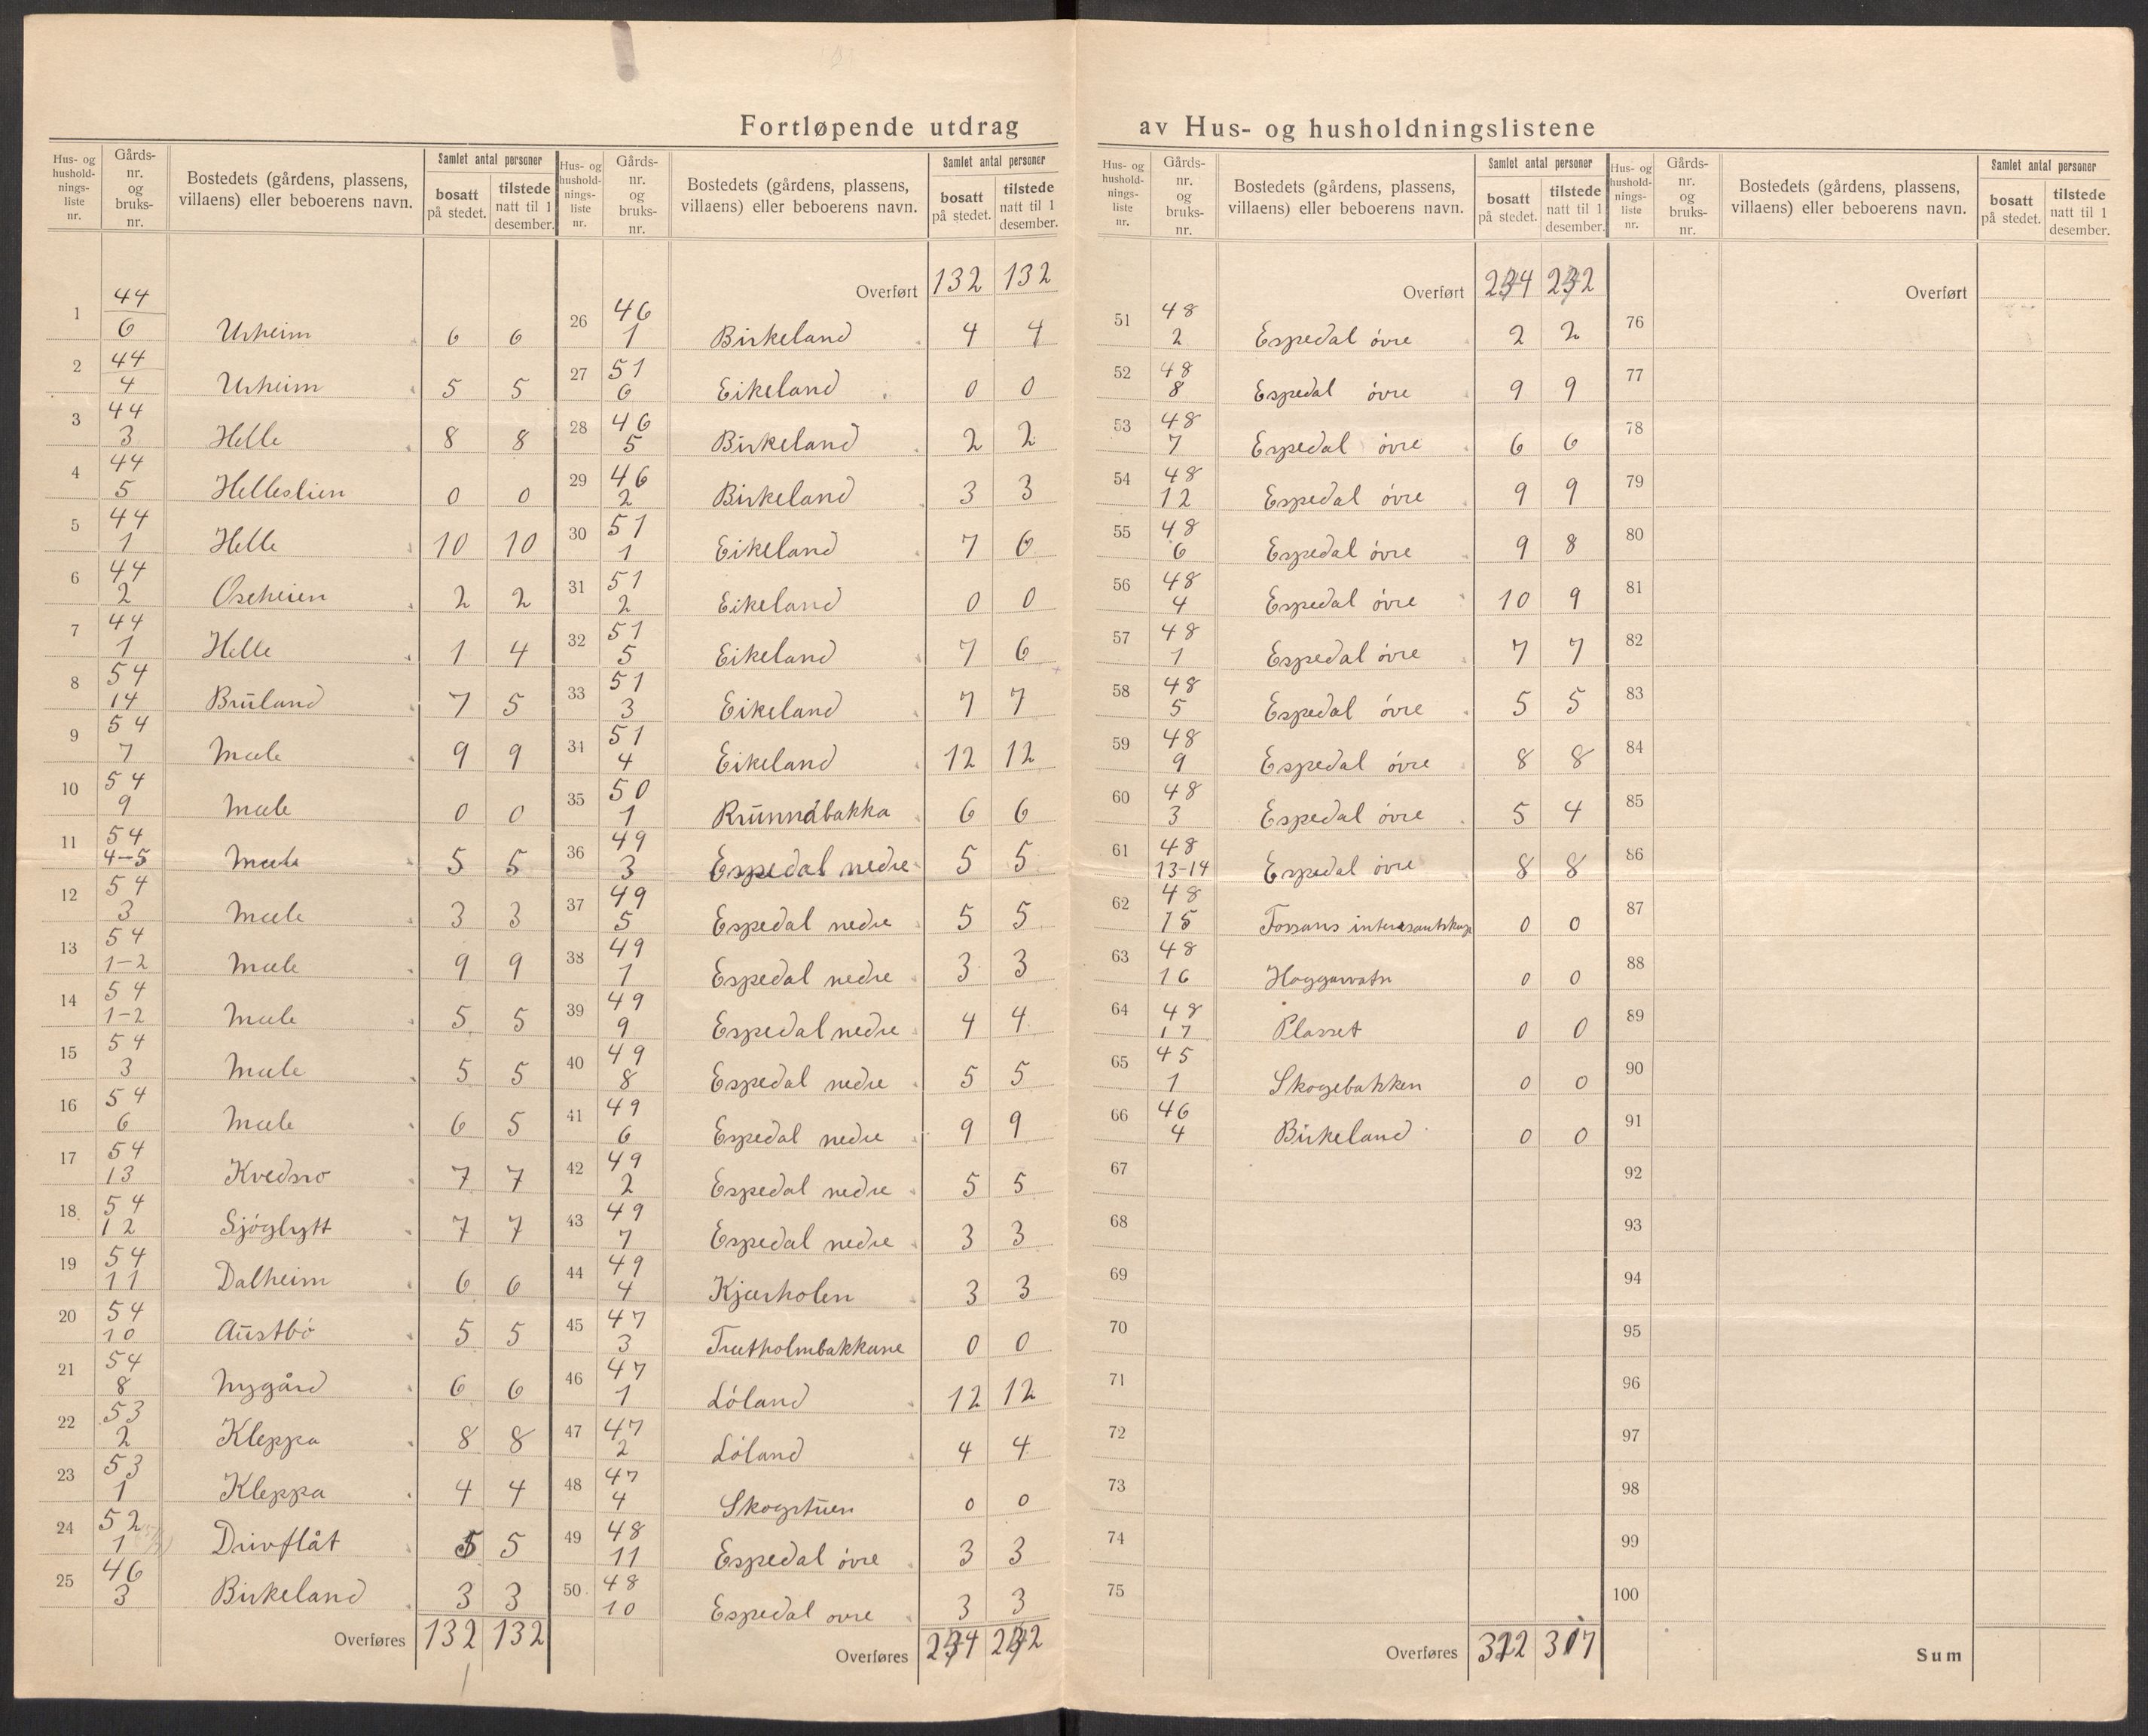 Fortløpende utdrag av Hus- og husholdningslistene
Hus- og husholdningsliste nr. | Gårds-nr. og bruks-nr. | Bostedets (gårdens, plassens, villaens) eller beboerens navn. | Samlet antal personer | bosatt på stedet. | tilstede natt til 1 desember.
1 44/6 Urheim 6 6
2 44/4 Urheim 5 5
3 44/3 Helle 8 8
4 44/5 Helleslien 0 0
5 44/1 Helle 10 10
6 44/2 Oseheien 2 2
7 44/1 Helle 1 4
8 54/14 Bruland 7 5
9 54/7 Mæle 9 9
10 54/9 Mæle 0 0
11 54/4-5 Mæle 5 5
12 54/3 Mæle 3 3
13 54/1-2 Mæle 9 9
14 54/1-2 Mæle 5 5
15 54/3 Mæle 5 5
16 54/6 Mæle 6 5
17 54/13 Kvedsro 7 7
18 54/12 Sjóglytt 7 7
19 54/11 Dalheim 6 6
20 54/10 Austbó 5 5
21 54/8 Nygård 6 6
22 53/2 Kleppa 8 8
23 53/1 Kleppa 4 4
24 52/1 Drivflåt 5 5
25 46/3 Birkeland 3 3
Overføres 132 132
Hus- og husholdningsliste nr. | Gårds-nr. og bruks-nr. | Bostedets (gårdens, plassens, villaens) eller beboerens navn. | Samlet antal personer | bosatt på stedet. | tilstede natt til 1 desember.
Overført 132 132
26 46/1 Birkeland 4 4
27 51/6 Eikeland 0 0
28 46/5 Birkeland 2 2
29 46/2 Birkeland 3 3
30 51/1 Eikeland 7 6
31 51/2 Eikeland 0 0
32 51/5 Eikeland 7 6
33 51/3 Eikeland 7 7
34 51/4 Eikeland 12 12
35 50/1 Runnábakka 6 6
36 49/3 Espedal nedre 5 5
37 49/5 Espedal nedre 5 5
38 49/1 Espedal nedre 3 3
39 49/9 Espedal nedre 4 4
40 49/8 Espedal nedre 5 5
41 49/6 Espedal nedre 9 9
42 49/2 Espedal nedre 5 5
43 49/7 Espedal nedre 3 3
44 49/4 Kjærholen 3 3
45 47/3 Trætholmbakkane 0 0
46 47/1 Lóland 12 12
47 47/2 Lóland 4 4
48 47/4 Skogstuen 0 0
49 48/11 Espedal óvre 3 3
50 48/10 Espedal ovre 3 3
Overføres
Hus- og husholdningsliste nr. | Gårds-nr. og bruks-nr. | Bostedets (gårdens, plassens, villaens) eller beboerens navn. | Samlet antal personer | bosatt på stedet. | tilstede natt til 1 desember.
Overført
51 48/2 Espedal óvre 2 2
52 48/8 Espedal óvre 9 9
53 48/7 Espedal óvre 6 6
54 48/12 Espedal óvre 9 9
55 48/6 Espedal óvre 9 8
56 48/4 Espedal óvre 10 9
57 48/1 Espedal óvre 7 7
58 48/5 Espedal óvre 5 5
59 48/9 Espedal óvre 8 8
60 48/3 Espedal óvre 5 4
61 48/13-14 Espedal óvre 8 8
62 48/15 Fossans 0 0
63 48/16 Haggarvatn 0 0
64 48/17 Plasset 0 0
65 45/1 Skogebakken 0 0
66 46/4 Birkeland 0 0
67
68
69
70
71
72
73
74
75
Overføres
Hus- og husholdningsliste nr. | Gårds-nr. og bruks-nr. | Bostedets (gårdens, plassens, villaens) eller beboerens navn. | Samlet antal personer | bosatt på stedet. | tilstede natt til 1 desember.
Overført
76
77
78
79
80
81
82
83
84
85
86
87
88
89
90
91
92
93
94
95
96
97
98
99
100
Sum